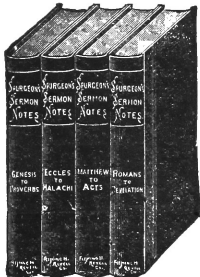 SPURGEON'S
SERMON
NOTES
GENESIS
TO
PROVERBS
FLEMING H.
REVELL
CO.
SPURGEON'S
SERMON
NOTES
ECCLES
TO
MALACHI
FLEMING H.
REVELL
CO.
SPURGEON'S
SERMON
NOTES
MATTHEW
TO
ACTS
FLEMING H.
REVELL
CO.
SPURGEON'S
SERMON
NOTES
ROMANS
TO
REVELATION
FLEMING H.
REVELL
CO.